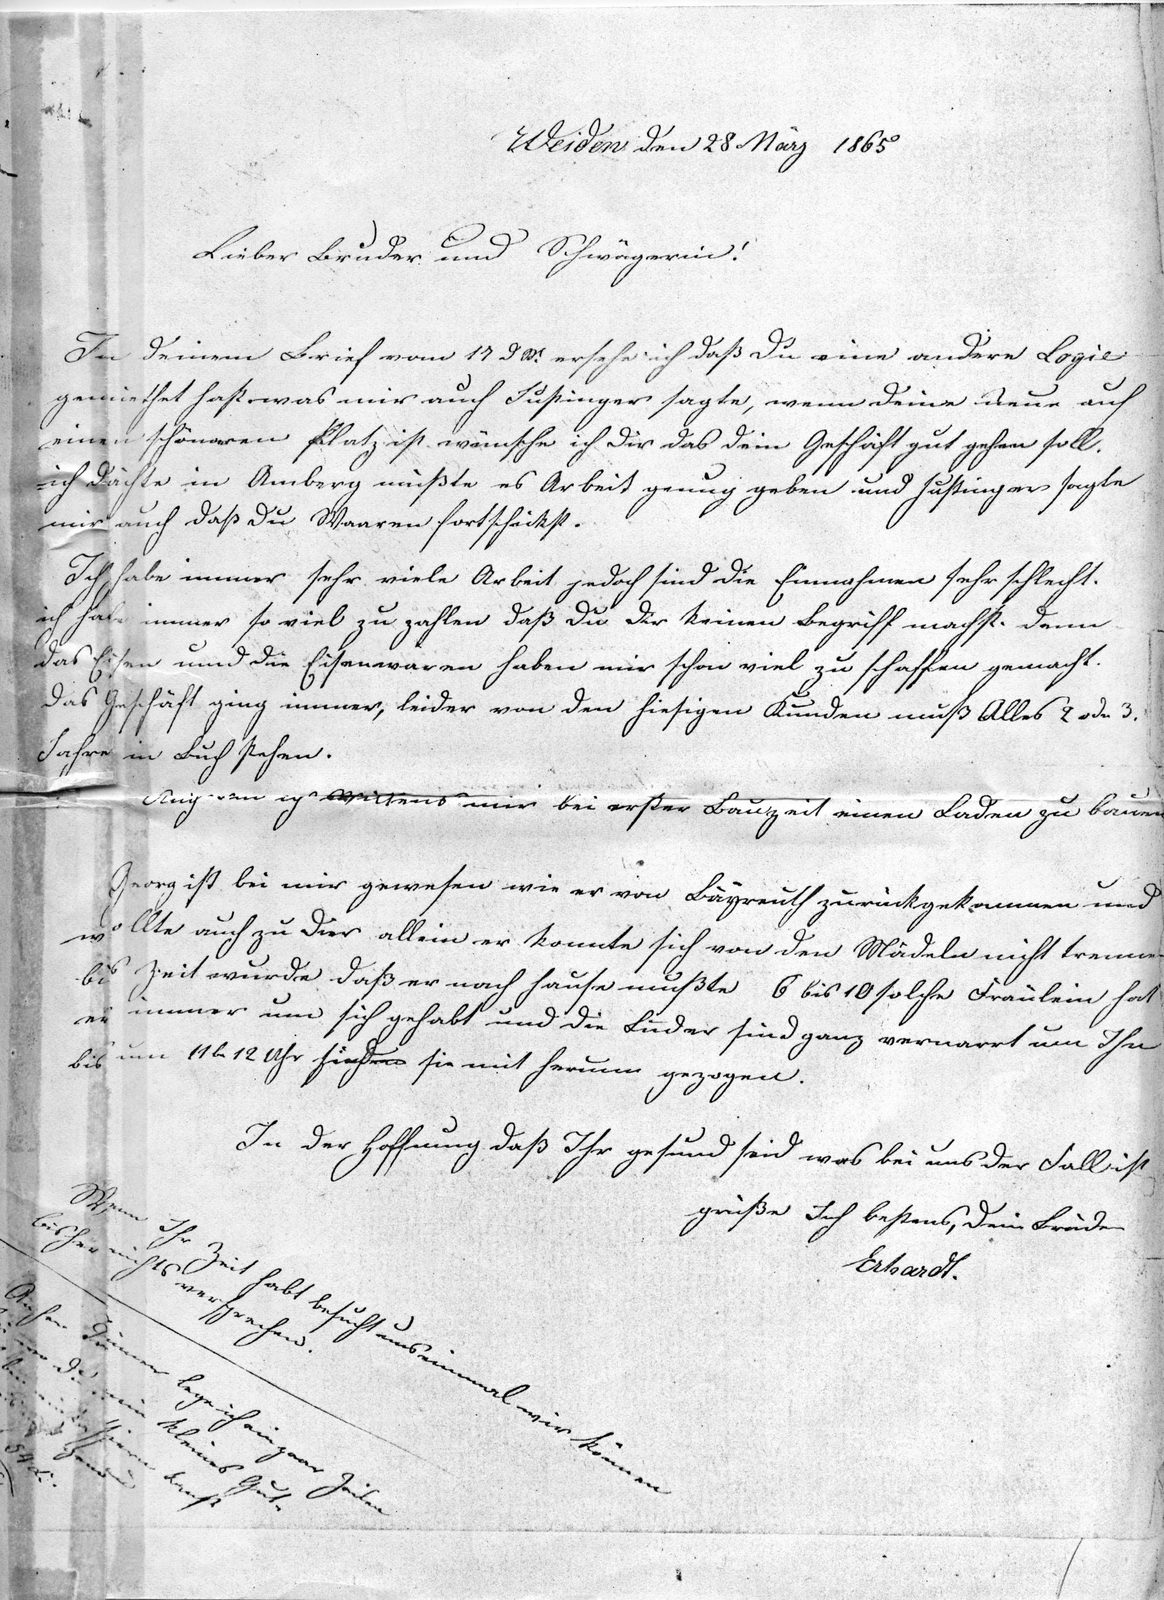 Weiden den 28 März 1865
Lieber Bruder und Schwägerin!
In deinem Brief vom 17 d M. ersehe ich daß du eine andere Logie
gemiethet hast was mir auch Justinger sagte, wenn deine neue auf
einen schöneren Platz ist wünsche ich dir das dein Geschäft gut gehen soll.
ich dächte in Amberg müßte es Arbeit genug geben und Justinger sagte
mir auch daß du Waaren fortschickst.
Ich habe immer sehr viele Arbeit jedoch sind die Einnahmen sehr schlecht.
ich habe immer so viel zu zahlen daß du dir keinen Begriff machst. denn
das Eisen und die Eisenwaren haben mir schon viel zu schaffen gemacht.
das Geschäft ging immer, leider von den hiesigen Kunden muß Alles 2 oder 3.
Jahre in Buch stehen.
Willens mir bei erster Bauzeit einen Laden zu bauen
Georg ist bei mir gewesen wie er von Bäyreuth zurückgekommen und
wollte auch zu dier allein er konnte sich von den Mädeln nicht trennen
bis Zeit wurde daß er nach hause mußte 6 bis 10 solche Fräulein hat
er immer um sich gehabt und die Luder sind ganz vernarrt um Ihn
bis um 11 b 12 Uhr sie mit herum gezogen.
In der Hoffnung daß Ihr gesund seid was bei uns der Fall ist
grüße Ich bestens, dein Bruder
Erhardt.
Wenn Ihr Zeit habt besucht uns einmal wir können
bisher nichts versprechen.
lege ich ein paar Zeilen
mein kleines Gut.